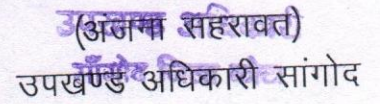 (अंजना सहरावत)
उपखण्ड अधिकारी सांगोद